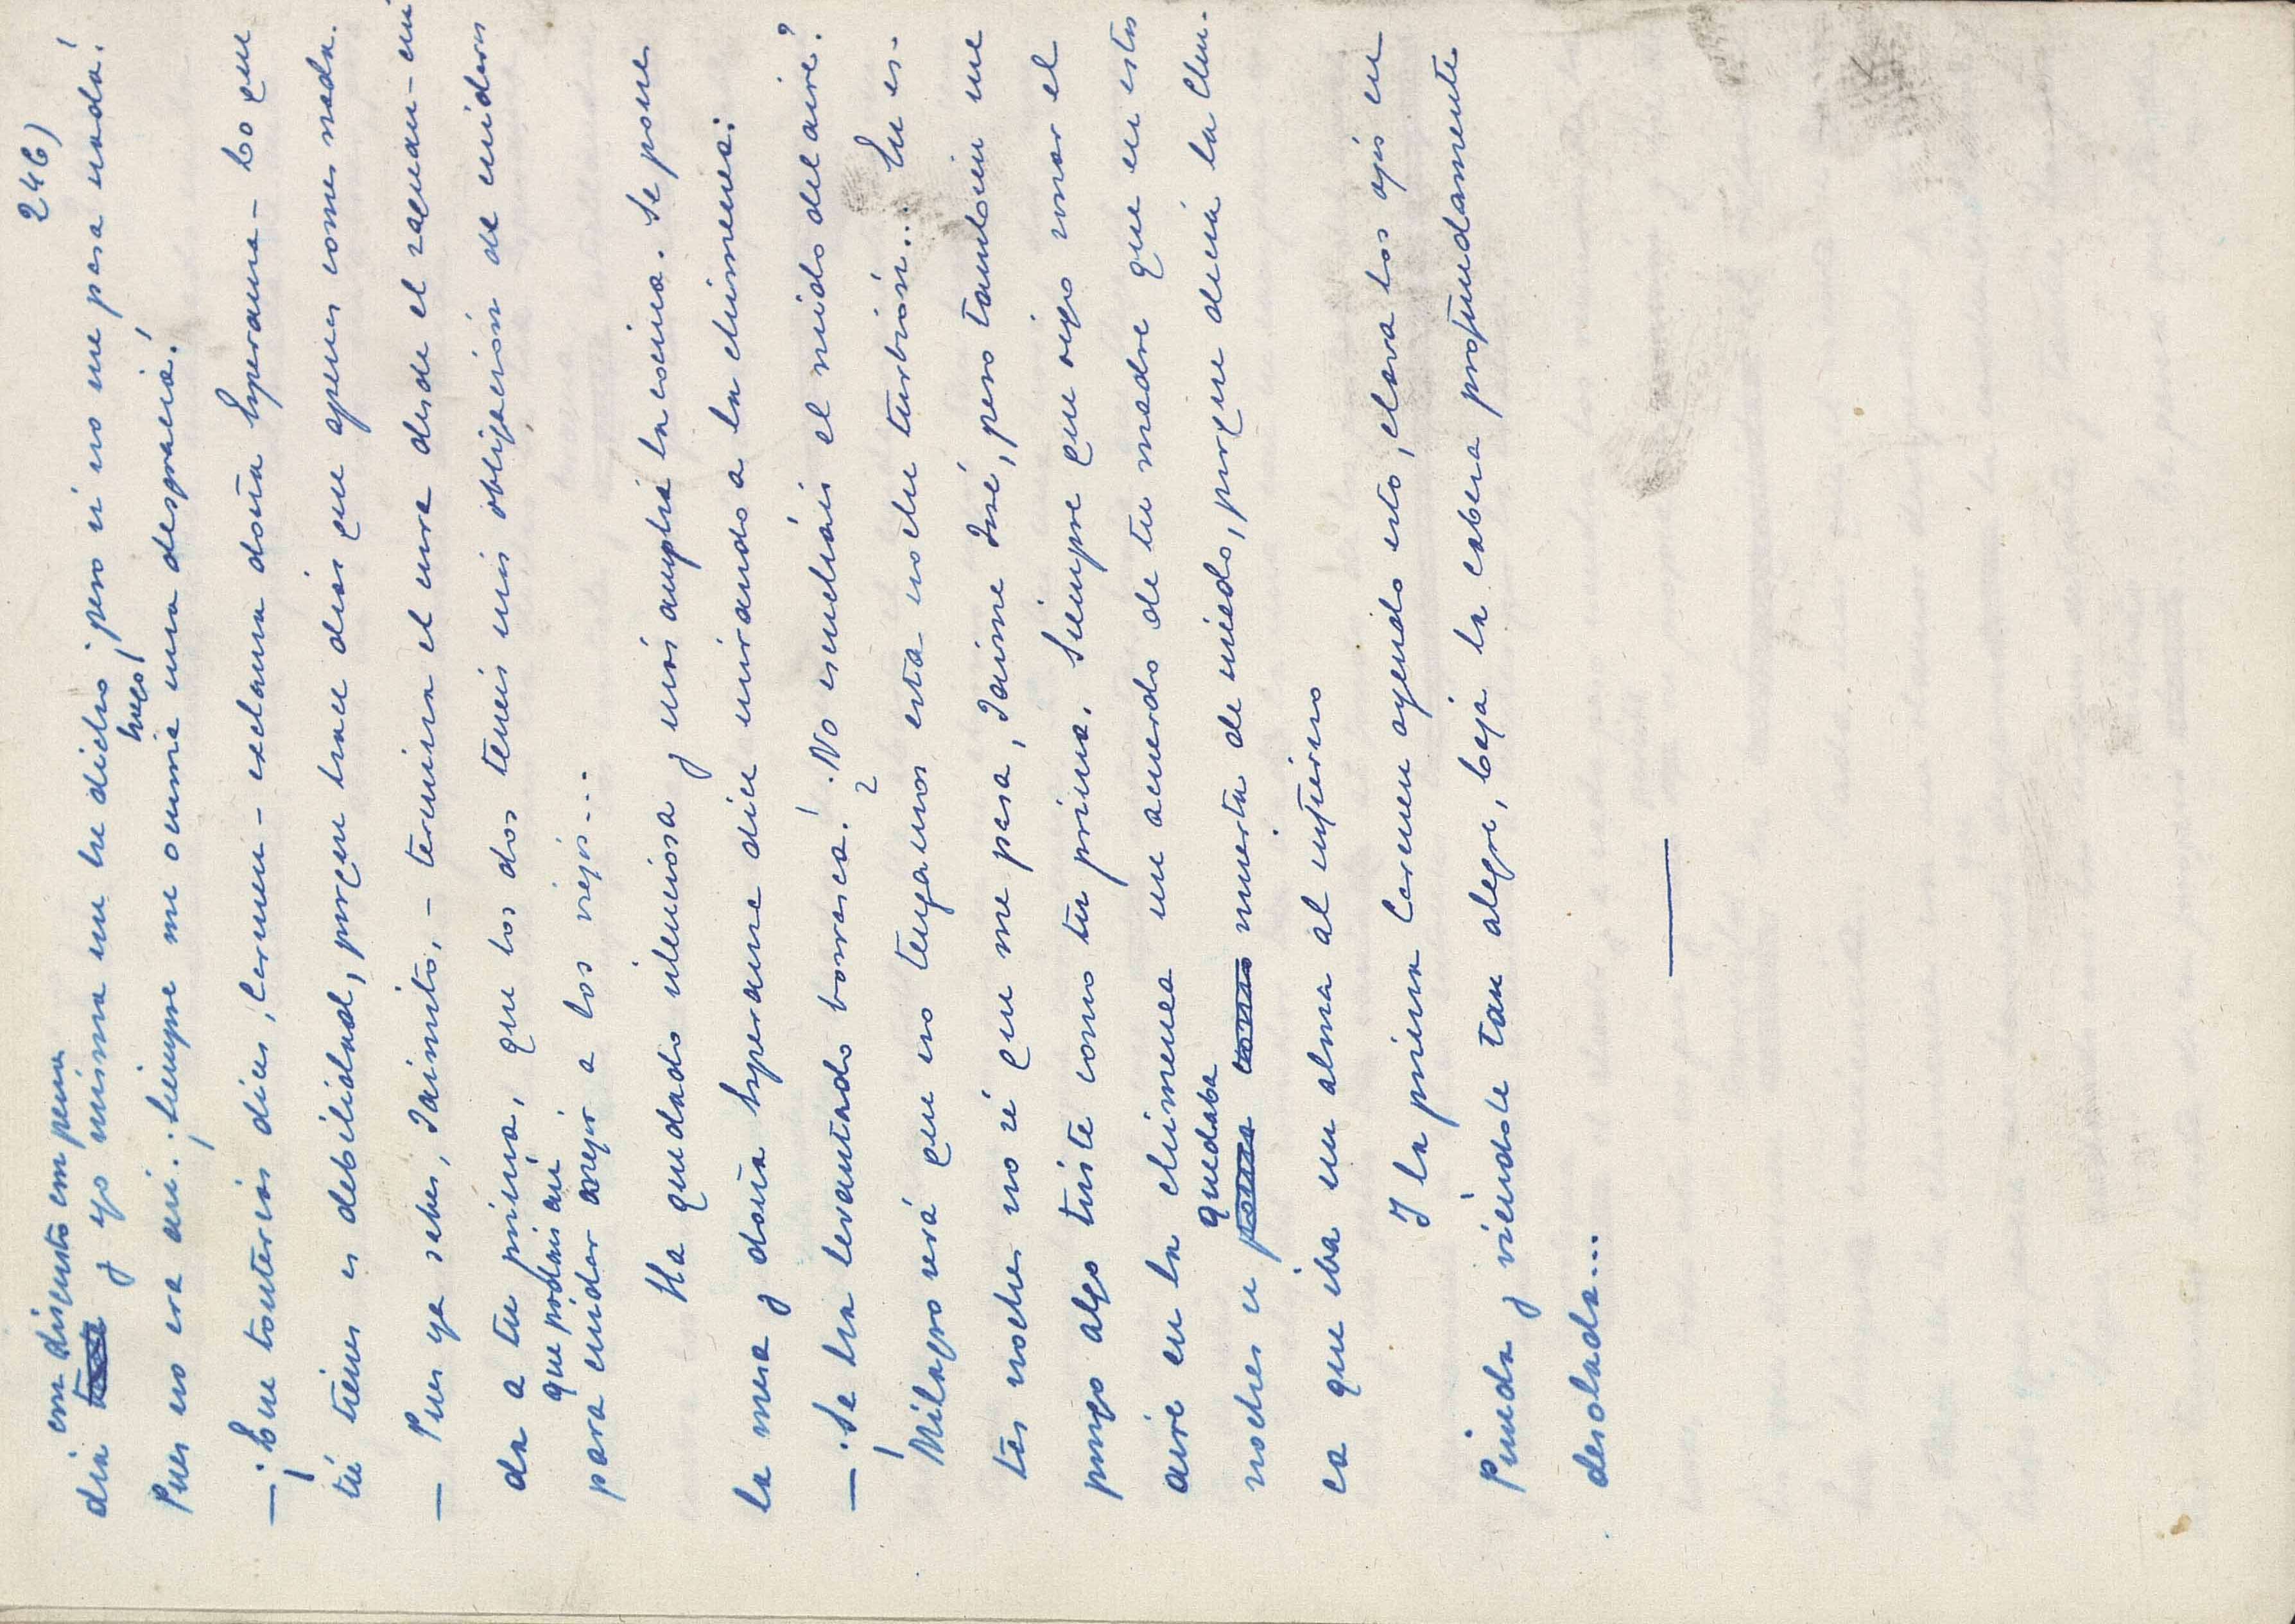 246)
con disgusto con pena
día y yo misma me he dicho ¡pero si no me pasa nada!
luego,
Pues no era así. ¡Siempre me ocurría una desgracia!
— ¡Qué tonterías dices, Carmen — exclama doña Esperanza — Lo que
tú tienes es debilidad, porque hace días que apenas comes nada.
— Pues ya sabes, Jaimito, — termina el cura desde el zaguan — cui
da a tu prima, que los dos teneis mis obligación de cuidaros
que podais así
para cuidar mejor a los viejos...
Ha quedado silenciosa y más amplia la cocina. Se pone
la mesa y doña Esperanza dice mirando a la chimenea:
— ¡Se ha levantado borrasca! ¿No escuchais el ruido del aire?
Milagro será que no tengamos esta noche turbión... En es-
tas noches no sé que me pasa, Jaime José, pero tambien me
pongo algo triste como tu prima. Siempre que oigo sonar el
aire en la chimenea me acuerdo de tu madre que en estas
quedaba
noches se ponia como muerta de miedo, porque decia la Chu-
ca que iba un alma al infierno
Y la prima Carmen oyendo esto, clava los ojos en
Pineda y viéndole tan alegre, baja la cabeza profundamente
desolada...